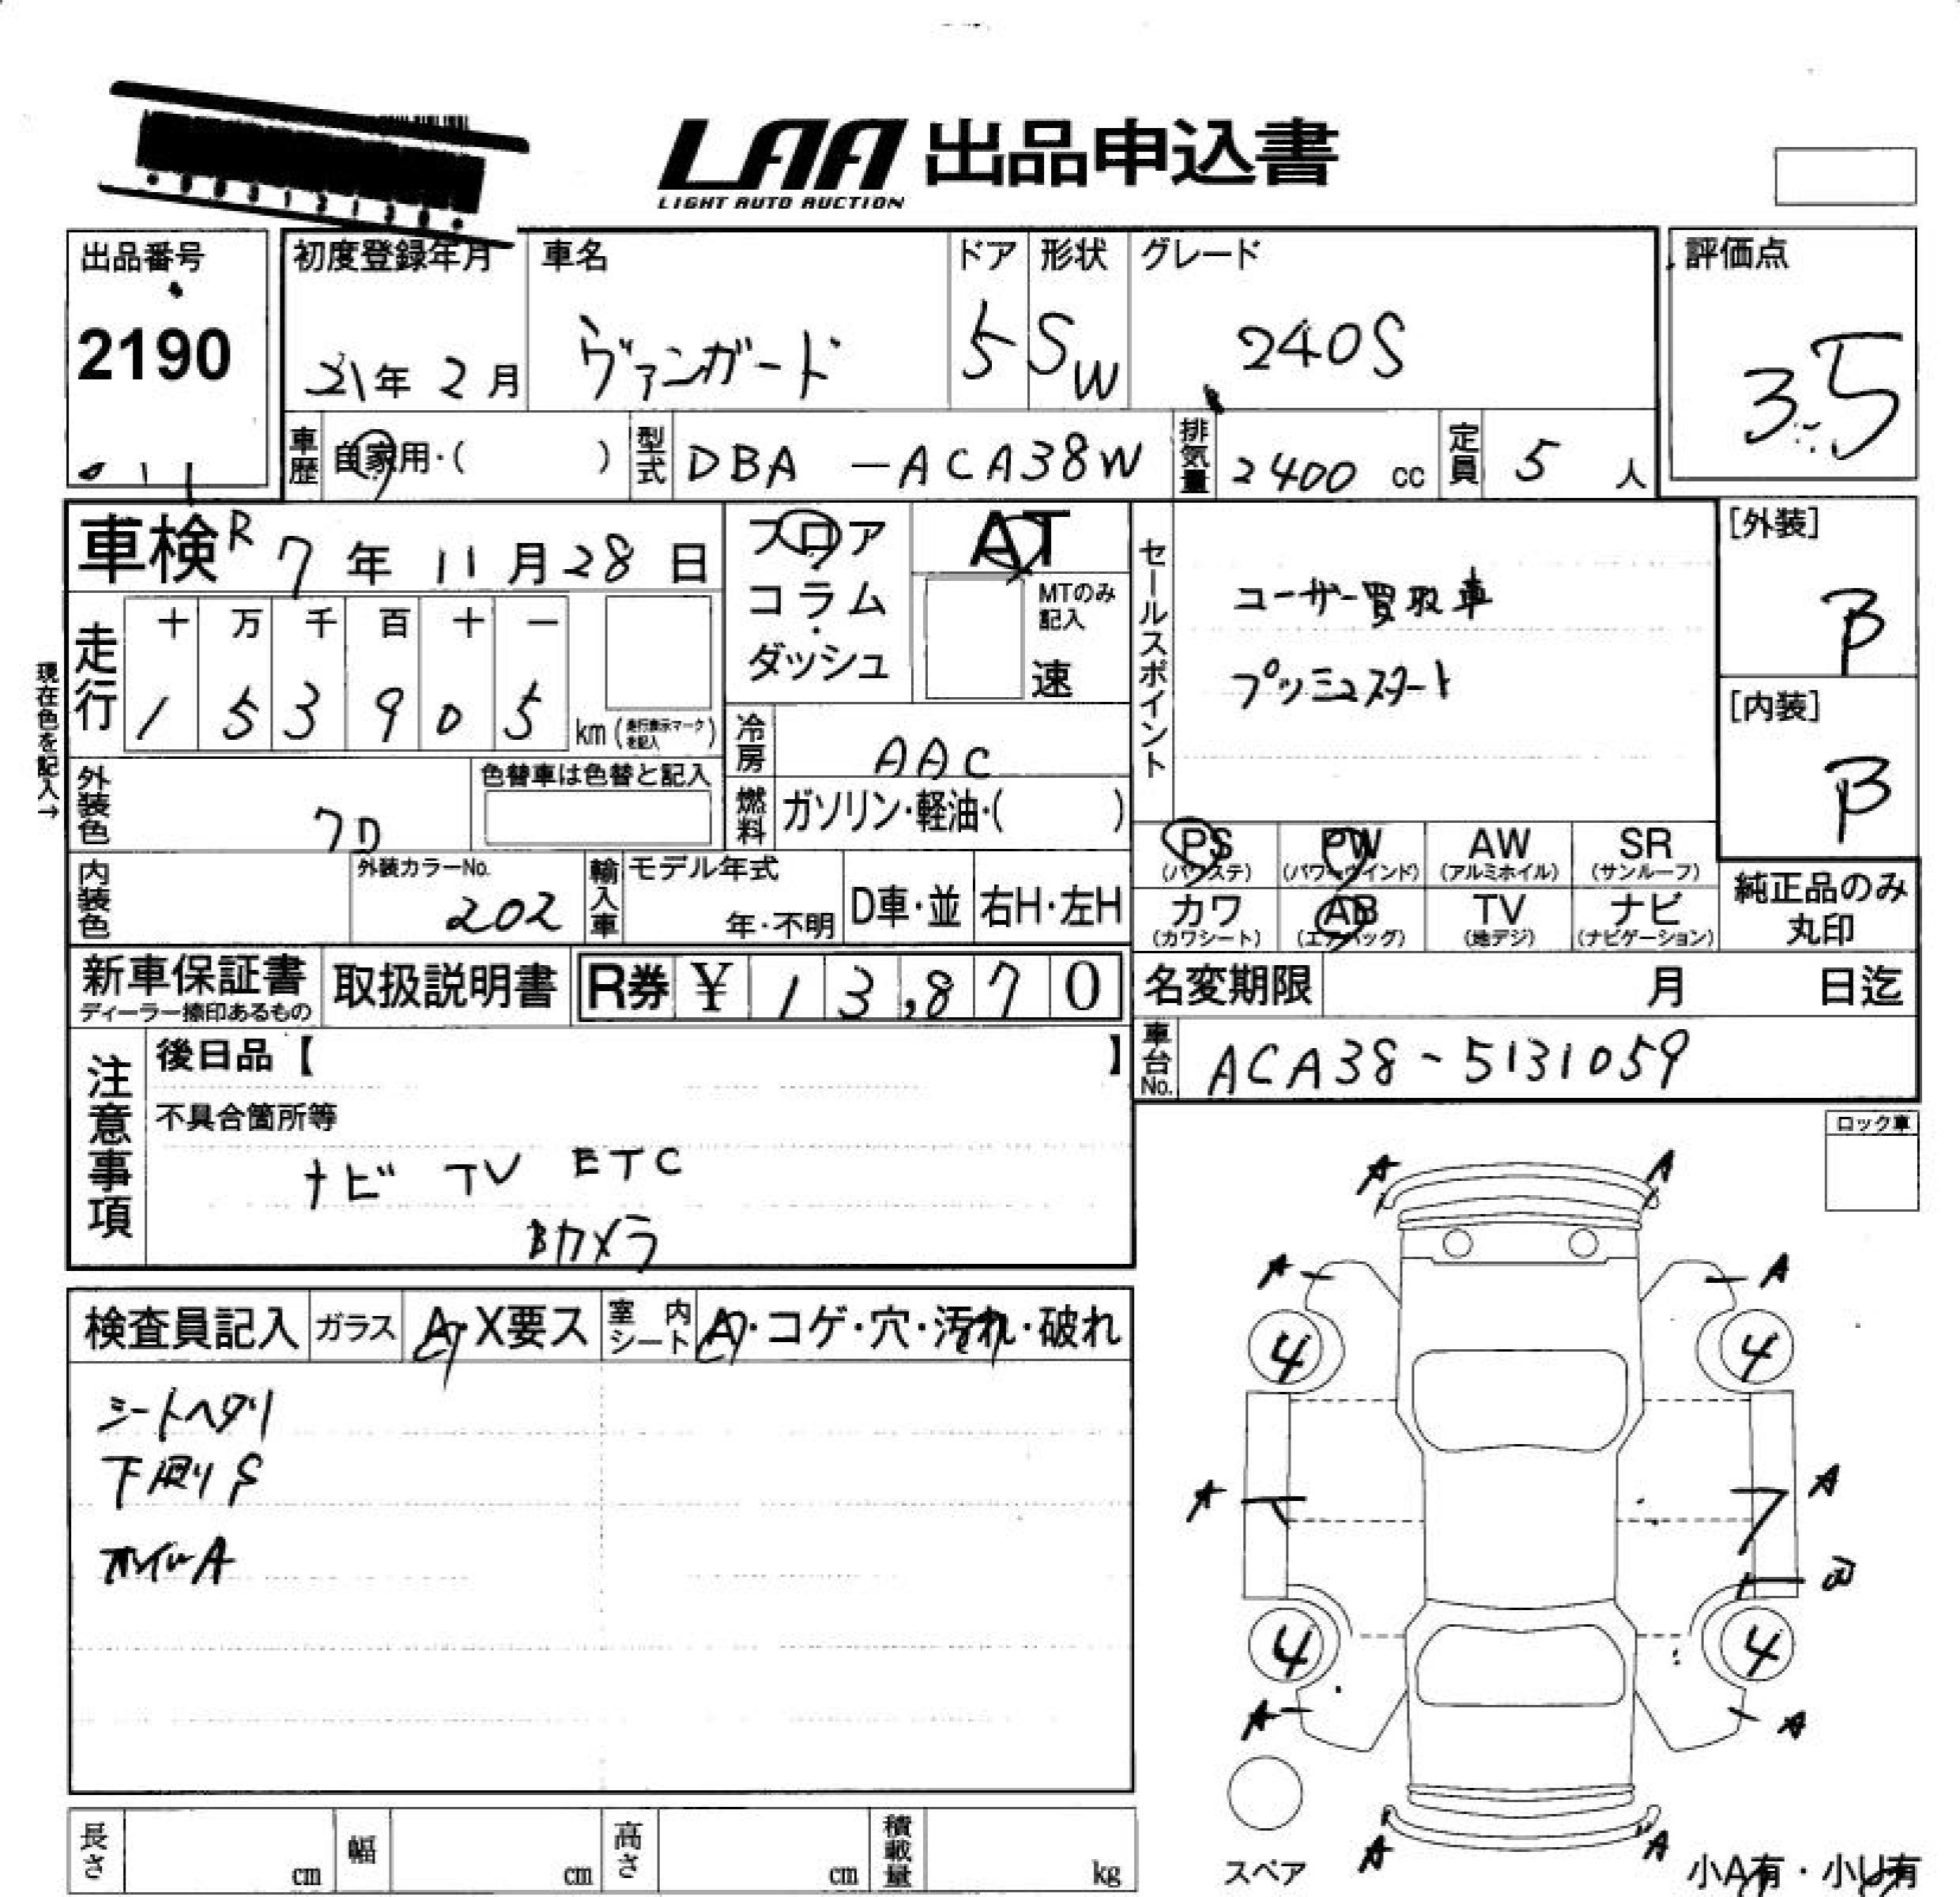 LAA 出品申込書
LIGHT AUTO AUCTION
出品番号
2190
初度登録年月
21年 2月
車名
ヴァンガード
ドア
5
形状
SW
グレード
240S
評価点
3.5
車歴 自家用・( )
型式 DBA -ACA38W
排気量 2400 cc
定員 5 人
車検 R 7 年 11 月 28 日
フロア
コラム
・
ダッシュ
AT
MTのみ
記入
速
セールスポイント
ユーザー買取車
プッシュスタート
[外装]
B
[内装]
B
現在色を記入→
走行
十 万 千 百 十 一
1 5 3 9 0 5
km (走行表示マークを記入)
冷房 AAC
外装色 クロ
色替車は色替と記入
燃料 ガソリン・軽油・( )
PS
(パワステ)
PW
(パワーウインド)
AW
(アルミホイル)
SR
(サンルーフ)
内装色
外装カラーNo.
202
輸入車
モデル年式
年・不明
D車・並
右H・左H
カワ
(カワシート)
AB
(エアバッグ)
TV
(地デジ)
ナビ
(ナビゲーション)
純正品のみ
丸印
新車保証書
ディーラー捺印あるもの
取扱説明書
R券 ¥ 13,870
名変期限 月 日迄
車台No. ACA38-5131059
注意事項
後日品【 】
不具合箇所等
ナビ TV ETC
Bカメラ
ロック車
検査員記入
ガラス A・X要ス
室内シート A・コゲ・穴・汚れ・破れ
シートヘタリ
下廻りS
ホイルA
A A
A A
4 4
A A
B
4 4
A A
A A
スペア
小A有・小U有
長さ cm
幅 cm
高さ cm
積載量 kg